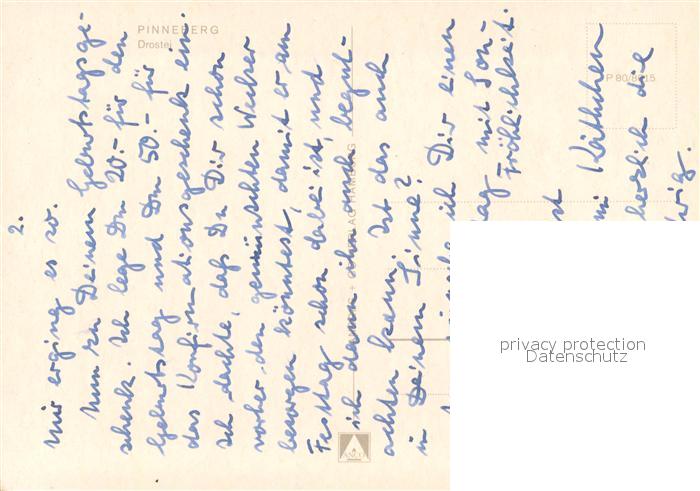 PINNEBERG
Drostei
P 80/8615
2.
mir erging es so.
Nun zu Deinem Geburtstagsge-
schenk. Ich lege Dm 20.- für den
Geburtstag und Dm 50.- für
das Konfirmationsgeschenk ein.
Ich dachte, daß Du Dir schon
vorher den gewünschten Wecker
besorgen könntest, damit er am
Festtag schon dabei ist, und
ich dann ihn auch begut-
achten kann. Ist das auch
in Deinem Sinne?
ich Dir einen
tag mit Son-
Fröhlichkeit.
Käthchen
herzlich die
HAMBURG
ANCO
privacy protection
Datenschutz